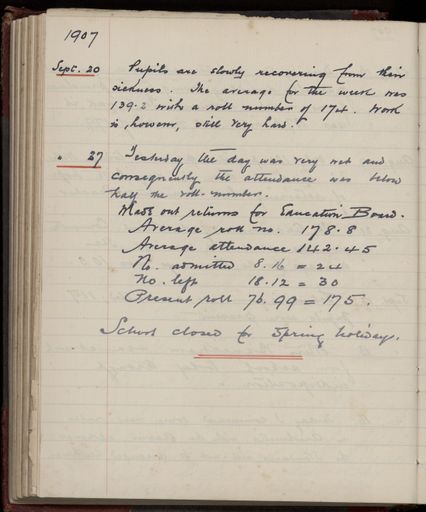 1907
Sept. 20 Pupils are slowly recovering from their
sickness. The average for the week was
139.2 with a roll number of 174. Work
is, however, still very hard.
" 27 Yesterday the day was very wet and
consequently the attendance was below
half the roll-number.
Made out returns for Education Board.
Average roll no. 178.8
Average attendance 142.45
No. admitted 8.16 = 24
No. left 18.12 = 30
Present roll 76.99 = 175.
School closed for Spring holidays.